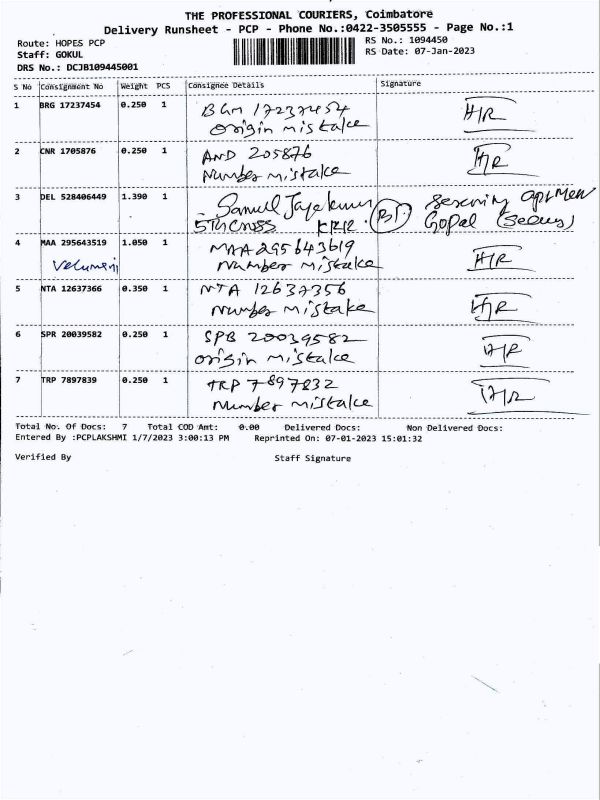 THE PROFESSIONAL COURIERS, Coimbatore
Delivery Runsheet - PCP - Phone No.:0422-3505555 - Page No.:1
Route: HOPES PCP
RS No.: 1094450
Staff: GOKUL
RS Date: 07-Jan-2023
DRS No.: DCJB109445001
S No Consignment No Weight PCS Consignee Details Signature
1 BRG 17237454 0.250 1 17237454 H/R
origin mistake
2 CNR 1705876 0.250 1 AND 205876 H/R
Number mistake
3 DEL 528406449 1.390 1 Samuel
5th cross Gopal
4 MAA 295643519 1.050 1 MAA 295643619 H/R
Number mistake
5 NTA 12637366 0.350 1 NTA 12637356 H/R
Number mistake
6 SPR 20039582 0.250 1 SPB 20039582 H/R
origin mistake
7 TRP 7897839 0.250 1 TRP 7897832 H/R
Number mistake
Total No. Of Docs: 7 Total COD Amt: 0.00 Delivered Docs: Non Delivered Docs:
Entered By :PCPLAKSHMI 1/7/2023 3:00:13 PM Reprinted On: 07-01-2023 15:01:32
Verified By Staff Signature